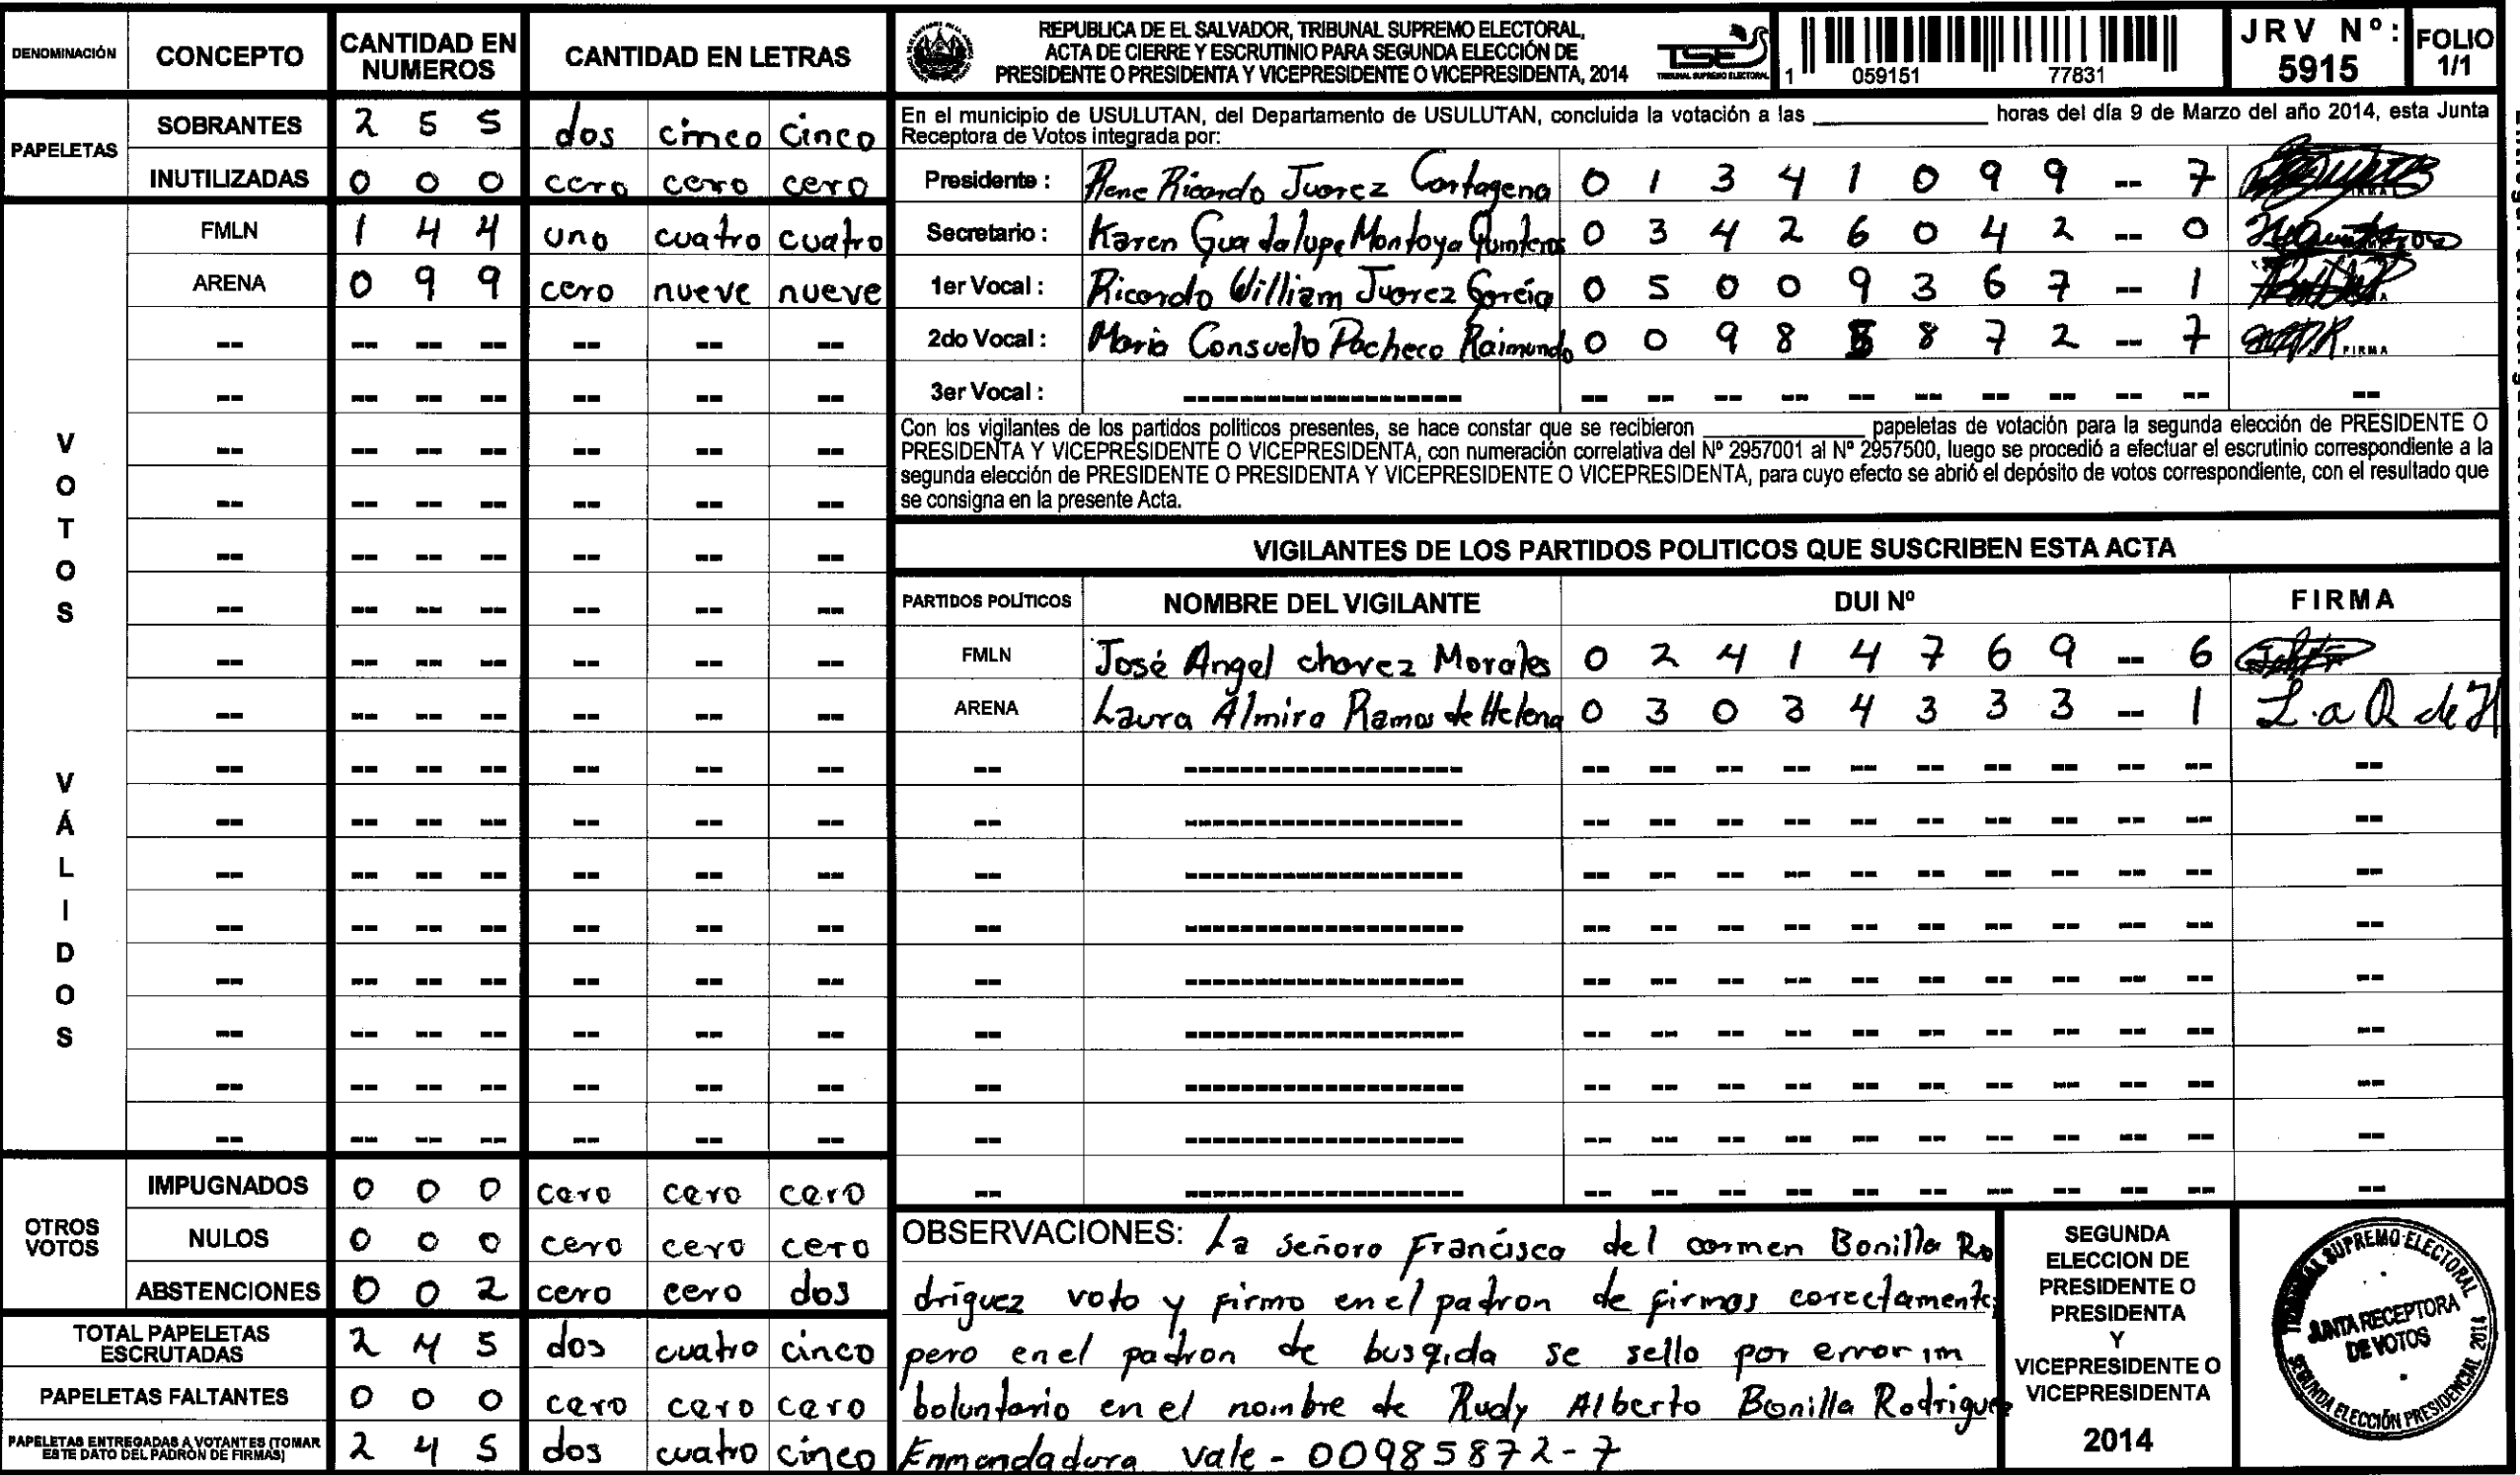 DENOMINACIÓN CONCEPTO CANTIDAD EN NUMEROS CANTIDAD EN LETRAS
PAPELETAS
SOBRANTES 2 5 5 dos cinco cinco
INUTILIZADAS 0 0 0 cero cero cero
VOTOS VÁLIDOS
FMLN 1 4 4 uno cuatro cuatro
ARENA 0 9 9 cero nueve nueve
OTROS VOTOS
IMPUGNADOS 0 0 0 cero cero cero
NULOS 0 0 0 cero cero cero
ABSTENCIONES 0 0 2 cero cero dos
TOTAL PAPELETAS ESCRUTADAS 2 4 5 dos cuatro cinco
PAPELETAS FALTANTES 0 0 0 cero cero cero
PAPELETAS ENTREGADAS A VOTANTES (TOMAR ESTE DATO DEL PADRÓN DE FIRMAS) 2 4 5 dos cuatro cinco
REPUBLICA DE EL SALVADOR, TRIBUNAL SUPREMO ELECTORAL,
ACTA DE CIERRE Y ESCRUTINIO PARA SEGUNDA ELECCIÓN DE
PRESIDENTE O PRESIDENTA Y VICEPRESIDENTE O VICEPRESIDENTA, 2014
TSE
TRIBUNAL SUPREMO ELECTORAL
1 059151 77831
JRV Nº: 5915
FOLIO 1/1
En el municipio de USULUTAN, del Departamento de USULUTAN, concluida la votación a las ____ horas del día 9 de Marzo del año 2014, esta Junta
Receptora de Votos integrada por:
Presidente : Rene Ricardo Juarez Cartagena 0 1 3 4 1 0 9 9 -- 7
Secretario : Karen Guadalupe Montoya Quinteros 0 3 4 2 6 0 4 2 -- 0
1er Vocal : Ricardo William Juarez García 0 5 0 0 9 3 6 7 -- 1
2do Vocal : Maria Consuelo Pacheco Raimundo 0 0 9 8 5 8 7 2 -- 7 FIRMA
3er Vocal :
Con los vigilantes de los partidos politicos presentes, se hace constar que se recibieron ____ papeletas de votación para la segunda elección de PRESIDENTE O
PRESIDENTA Y VICEPRESIDENTE O VICEPRESIDENTA, con numeración correlativa del Nº 2957001 al Nº 2957500, luego se procedió a efectuar el escrutinio correspondiente a la
segunda elección de PRESIDENTE O PRESIDENTA Y VICEPRESIDENTE O VICEPRESIDENTA, para cuyo efecto se abrió el depósito de votos correspondiente, con el resultado que
se consigna en la presente Acta.
VIGILANTES DE LOS PARTIDOS POLITICOS QUE SUSCRIBEN ESTA ACTA
PARTIDOS POLÍTICOS NOMBRE DEL VIGILANTE DUI Nº FIRMA
FMLN José Angel chavez Morales 0 2 4 1 4 7 6 9 -- 6
ARENA Laura Almira Ramos de Helena 0 3 0 3 4 3 3 3 -- 1 L.a R de H
OBSERVACIONES: La señora Francisca del carmen Bonilla Ro
driguez voto y firmo en el padron de firmas corectamente,
pero en el padron de busqida se sello por error im
boluntario en el nombre de Rudy Alberto Bonilla Rodriguez
Enmendadura vale - 00985872-7
SEGUNDA
ELECCION DE
PRESIDENTE O
PRESIDENTA
Y
VICEPRESIDENTE O
VICEPRESIDENTA
2014
TRIBUNAL SUPREMO ELECTORAL
JUNTA RECEPTORA
DE VOTOS
SEGUNDA ELECCIÓN PRESIDENCIAL 2014